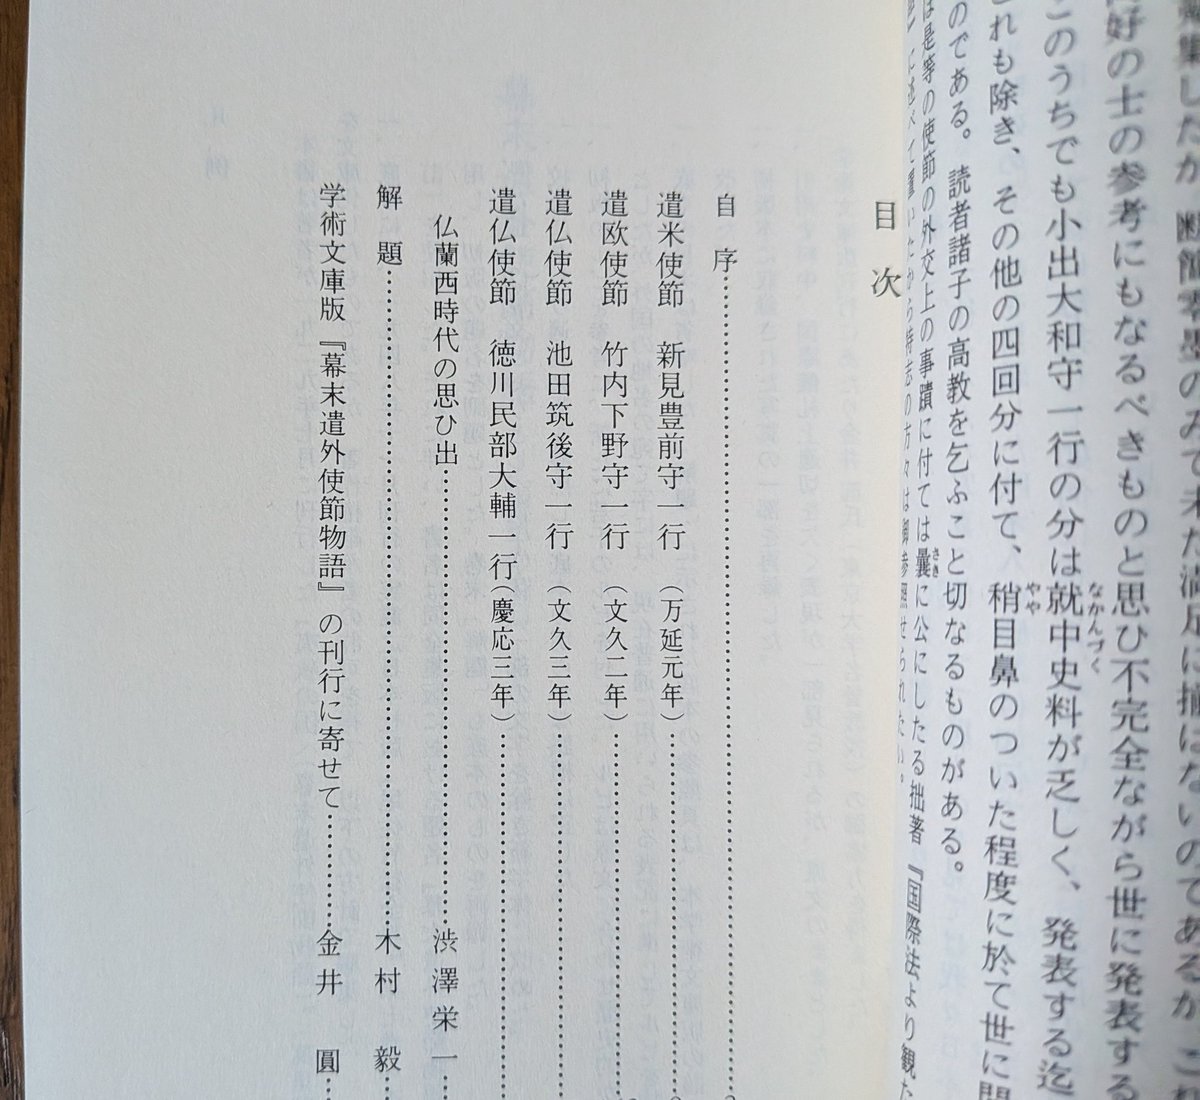 好の士の参考にもなるべきものと思ひ不完全ながら世に発表する
このうちでも小出大和守一行の分は就中史料が乏しく、発表する迄
なかんづく
れも除き、その他の四回分に付て、稍目鼻のついた程度に於て世に
やや
のである。読者諸子の高教を乞ふこと切なるものがある。
は是等の使節の外交上の事蹟に付ては曩に公にしたる拙著『国際法より観た
さき
目次
自序
遣米使節 新見豊前守一行(万延元年)
遣欧使節 竹内下野守一行(文久二年)
遣仏使節 池田筑後守一行(文久三年)
遣仏使節 徳川民部大輔一行(慶応三年)
仏蘭西時代の思ひ出……渋澤栄一
解題……木村 毅
学術文庫版『幕末遣外使節物語』の刊行に寄せて……金井 圓